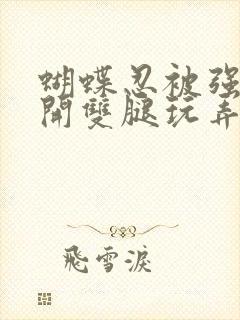 蝴蝶忍被强
開雙腿玩弄
飛雪淚